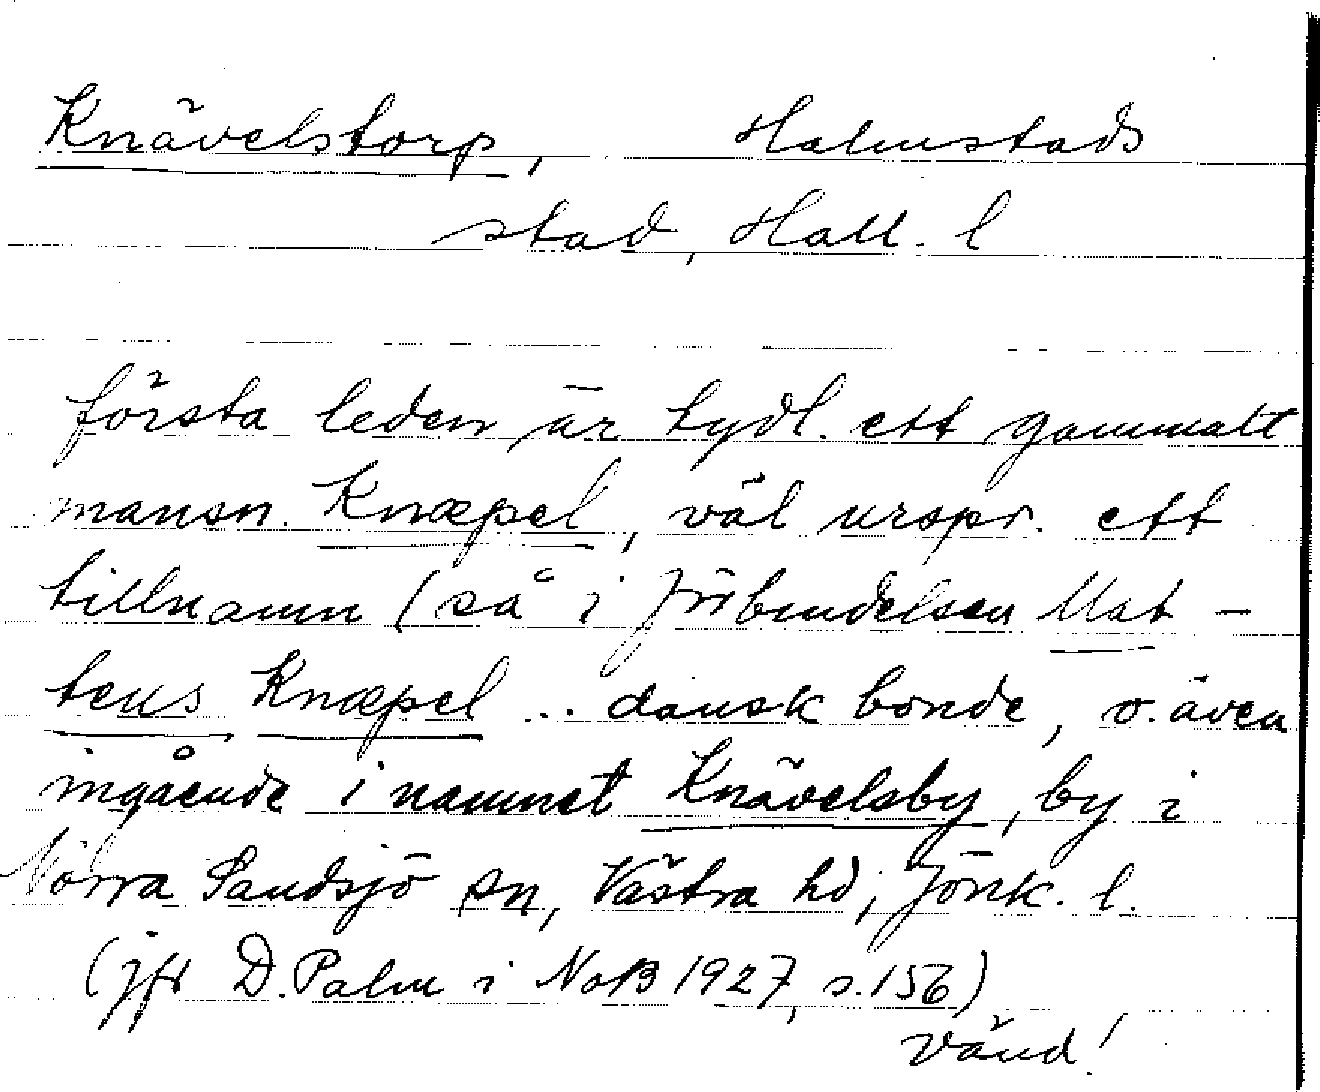 Knävelstorp, Halmstads
stad, Hall. l
första leden är tydl. ett gammalt
mansn. Knæpel, väl urspr. ett
tillnamn (så i förbindelsen Mat-
teus Knæpel .. dansk bonde, o. även
ingående i namnet Knävelsby, by i
Norra Sandsjö sn, Västra hd, Jönk. l.
(jfr D. Palm i NoB 1927, s. 156)
vänd!